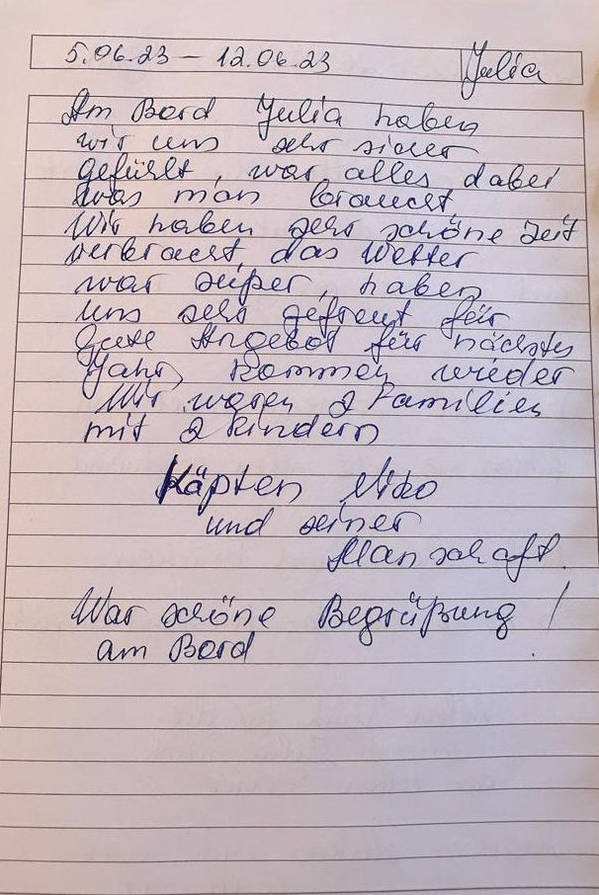 5.06.23 – 12.06.23 Julia
Am Bord Julia haben
wir uns sehr sicher
gefühlt, war alles dabei
was man braucht
Wir haben sehr schöne Zeit
verbracht, das Wetter
war super, haben
uns sehr gefreut für
gute Angebot für nächstes
Jahr, kommen wieder
Wir waren 2 Familien
mit 2 Kindern
Käpten Niko
und seiner
Manschaft.
War schöne Begrüßung !
am Bord